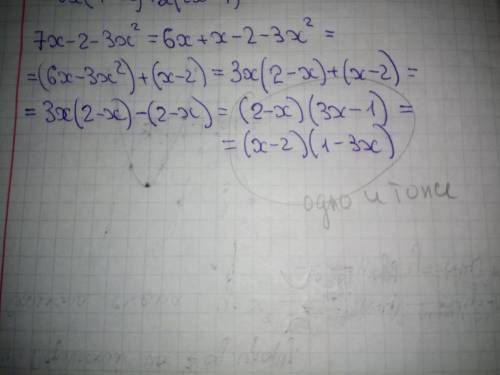 7x-2-3x² = 6x+x-2-3x² =
=(6x-3x²)+(x-2) = 3x(2-x)+(x-2) =
= 3x(2-x)-(2-x) = (2-x)(3x-1) =
= (x-2)(1-3x)
одно и тоже